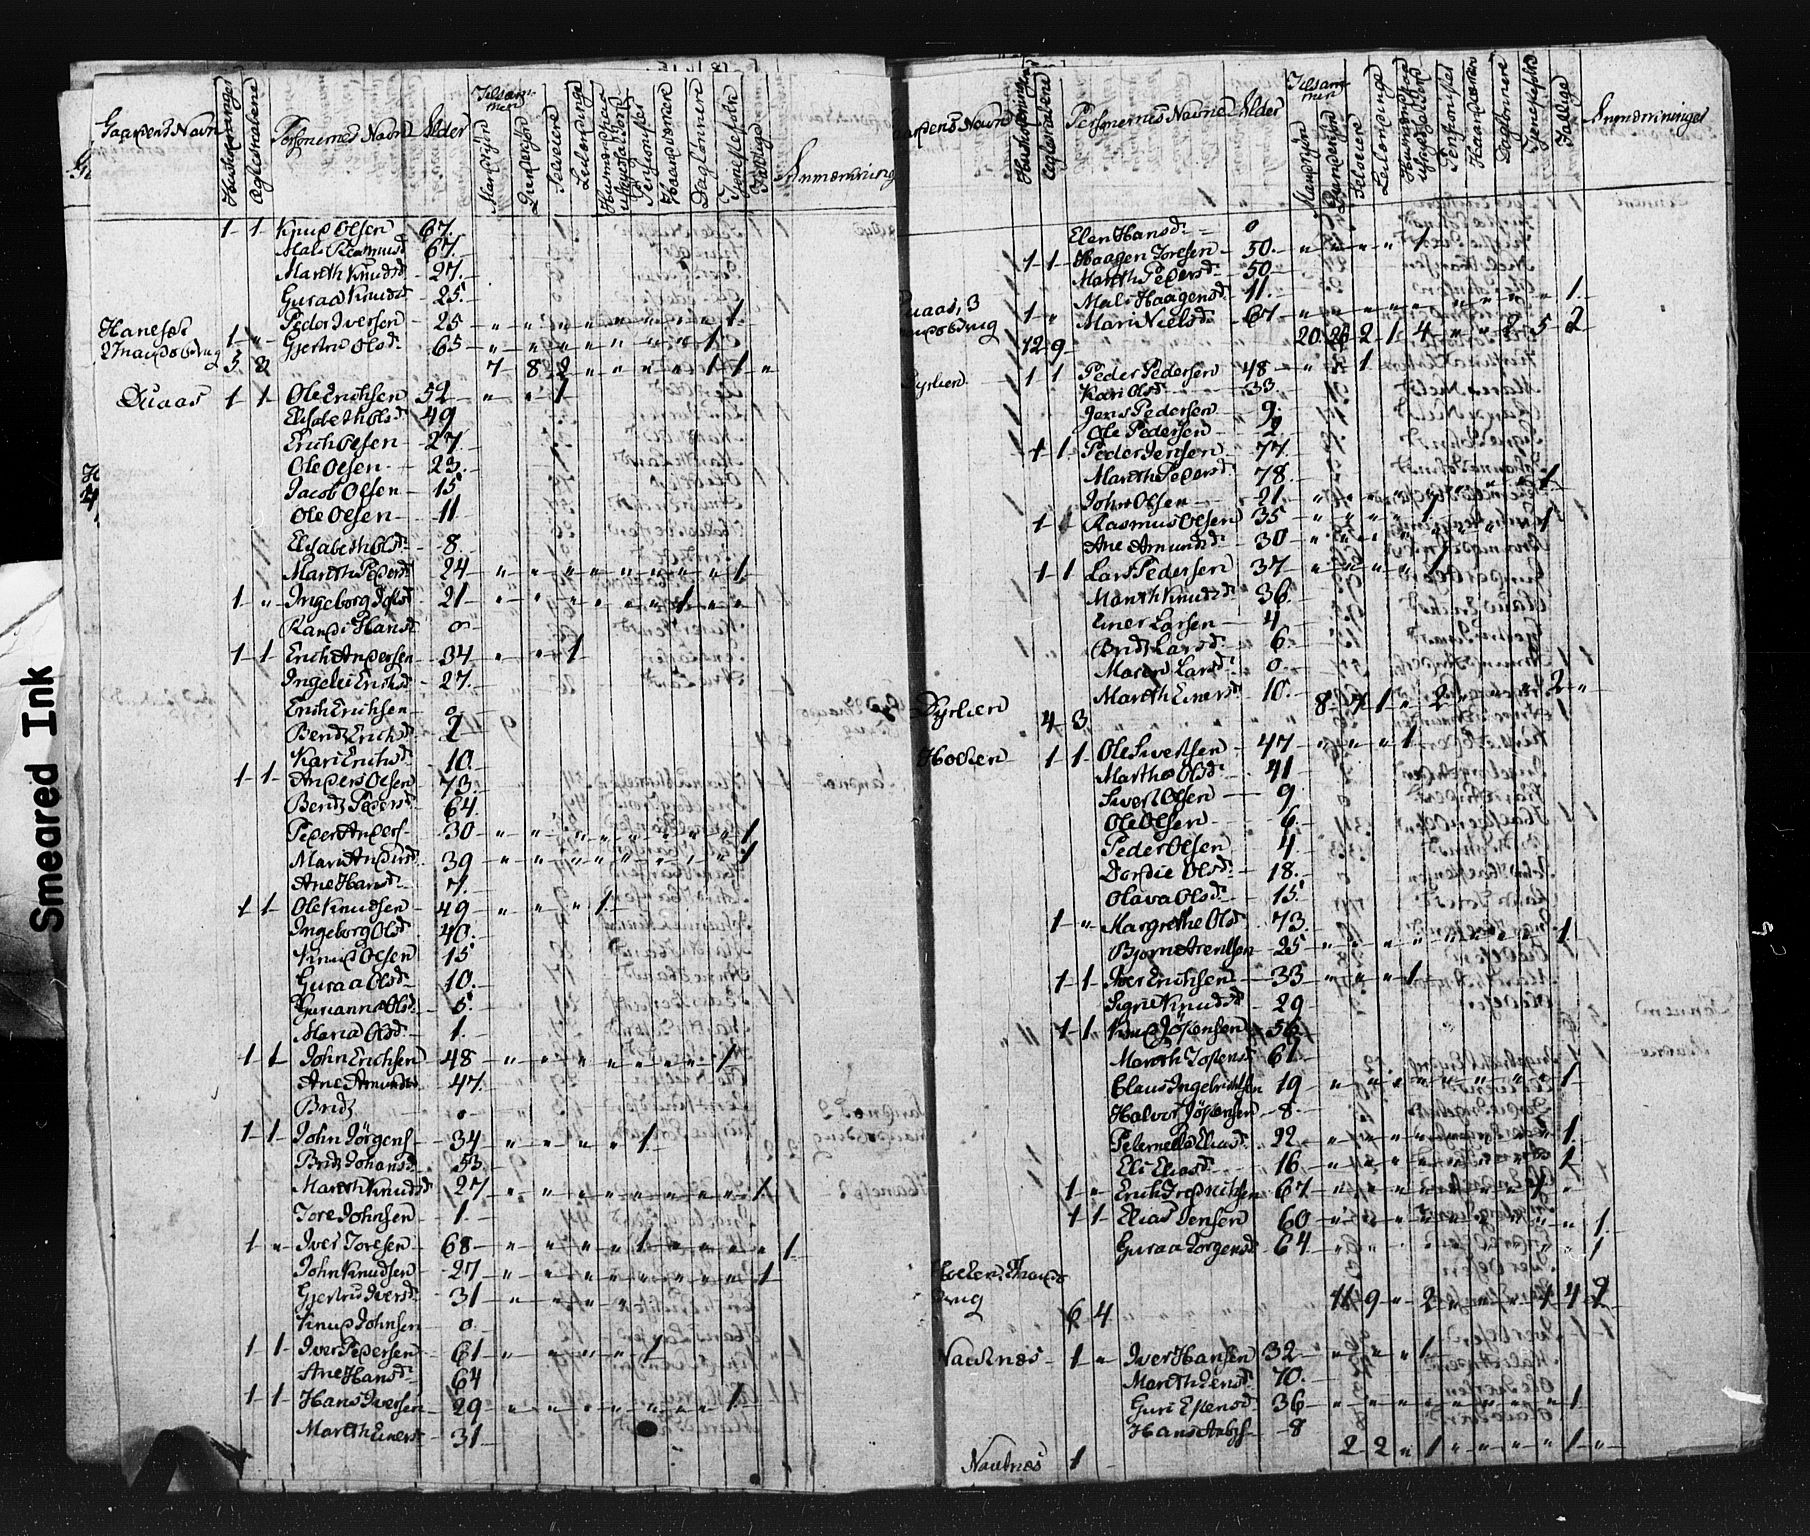 Gaardens Navn Huusholdninger Ægteskabene Personernes Navne Alder Tilsammen Mandkjøn Qvindekjøn Selveiere Leilendinge Huusmænd Pensionister Haandværkere Daglønnere Tjenestefolk Fattige Anmærkning
1 1 Knud Olsen 67.
Mali Rasmusd 67.
Mareth Knudsd 27.
Guraa Knudsd 25.
Peder Iversen 25 1.
Hanesæt 1 „ Gjertru Olsd. 65 1
2 Mandsbrug 5 2 7 8 2 „ „ „ „ „ 1 1 „
Duaas 1 1 Ole Erichsen 52 „ „ 1
Elisabeth Olsd 49
Erich Olsen 27
Ole Olsen 23.
Jacob Olsen 15
Ole Olsen 11
Elisabeth Olsd. 8.
Mareth Pedersd 24 1
1 „ Ingeborg Olsd 21 1
Randi Hansd 0
1 1 Erich Andersen 34 1
Ingelei Erichsd 27.
Erich Erichsen 0
Berith Erichsd. 2
Kari Erichsd. 10.
1 1 Anders Olsen 73.
Berith Pedersd 64
Peder Anders. 30 1
Mari Andersd 39 1
Ane Hansd. 7.
1 1 Ole Knudsen 49 1
Ingeborg Olsd 40.
Knud Olsen 15
Guraa Olsd. 10.
Gurianna Olsd. 5.
Maria Olsd. 1.
1 1 John Erichsen 48 1
Ane Amundsd 47.
Brith 0
1 1 John Jørgens. 34 1
Brith Johansd. 53.
Mareth Knudsd 27 1
Tore Johnsen 1.
1 „ Iver Toresen 68 1 1
John Knudsen 27 1
Gjertru Iversd. 31
Knud Johnsen 0.
1 1 Iver Pedersen 61 1
Ane Hansd. 64
1 1 Hans Iversen 29 1
Mareth Einersd 31
Gaardens Navn Huusholdninger Ægteskabene Personernes Navne Alder Tilsammen Mandkjøn Qvindekjøn Selveiere Leilendinge Huusmænd Pensionister Haandværkere Daglønnere Tjenestefolk Fattige Anmærkninger
Elen Hansd. 0
1 1 Haagen Toresen 50. 1
Mareth Pedersd. 50
Mali Haagensd. 11. 1.
1 „ Mari Nielsd. 67
12 9 20 26 2 1 4 „ „ 2 5 2
Dyrlien 1 1 Peder Pedersen 48 1
Kari Olsd. 33
Jens Pedersen 9.
Ole Pedersen 2
1 1 Peder Jensen 77
Mareth Pedersd. 78. 1
John Olsen 21
1 1 Rasmus Olsen 35 1
Ane Amundsd. 30
1 1 Lars Pedersen 37 1
Mareth Knudsd 36.
Einer Larsen 4
Brith Larsd. 6
Maren Larsd. 0.
Mareth Einersd. 10.
Dyrlien 4 3 8 7 1 „ 2 2 „
Holsen 1 1 Ole Sivertsen 47 1
Martha Olsd. 41
Sivert Olsen 9
Ole Olsen 6.
Peder Olsen 4
Dordie Olsd. 18.
Olava Olsd. 15.
1 „ Margrethe Olsd. 73.
Bjørn Arentsen 25 1.
1 1 Iver Erichsen 33 1
Sigrie Knudsd 29
1 1 Knud Jøstensen 56
Mareth Jostensd. 61.
Claus Ingebrichtsen 19 1
Halvor Jøstensen 8
Peternelle Eliasd. 22 1
Eli Eliasd. 16 1
1 „ Erich Fredrichsen 67.
1 1 Elias Jensen 60 1
Guraa Jorgensd. 64 1
6 4 11 9 „ 2 4 2
Naustnæs 1 „ Iver Hansen 32 1
Mareth Jensd. 70.
Guri Estensd. 36 1
Hans 8
Naustnæs 1 2 2 „ 1 „ „ „ „ 1 „
Smeared Ink